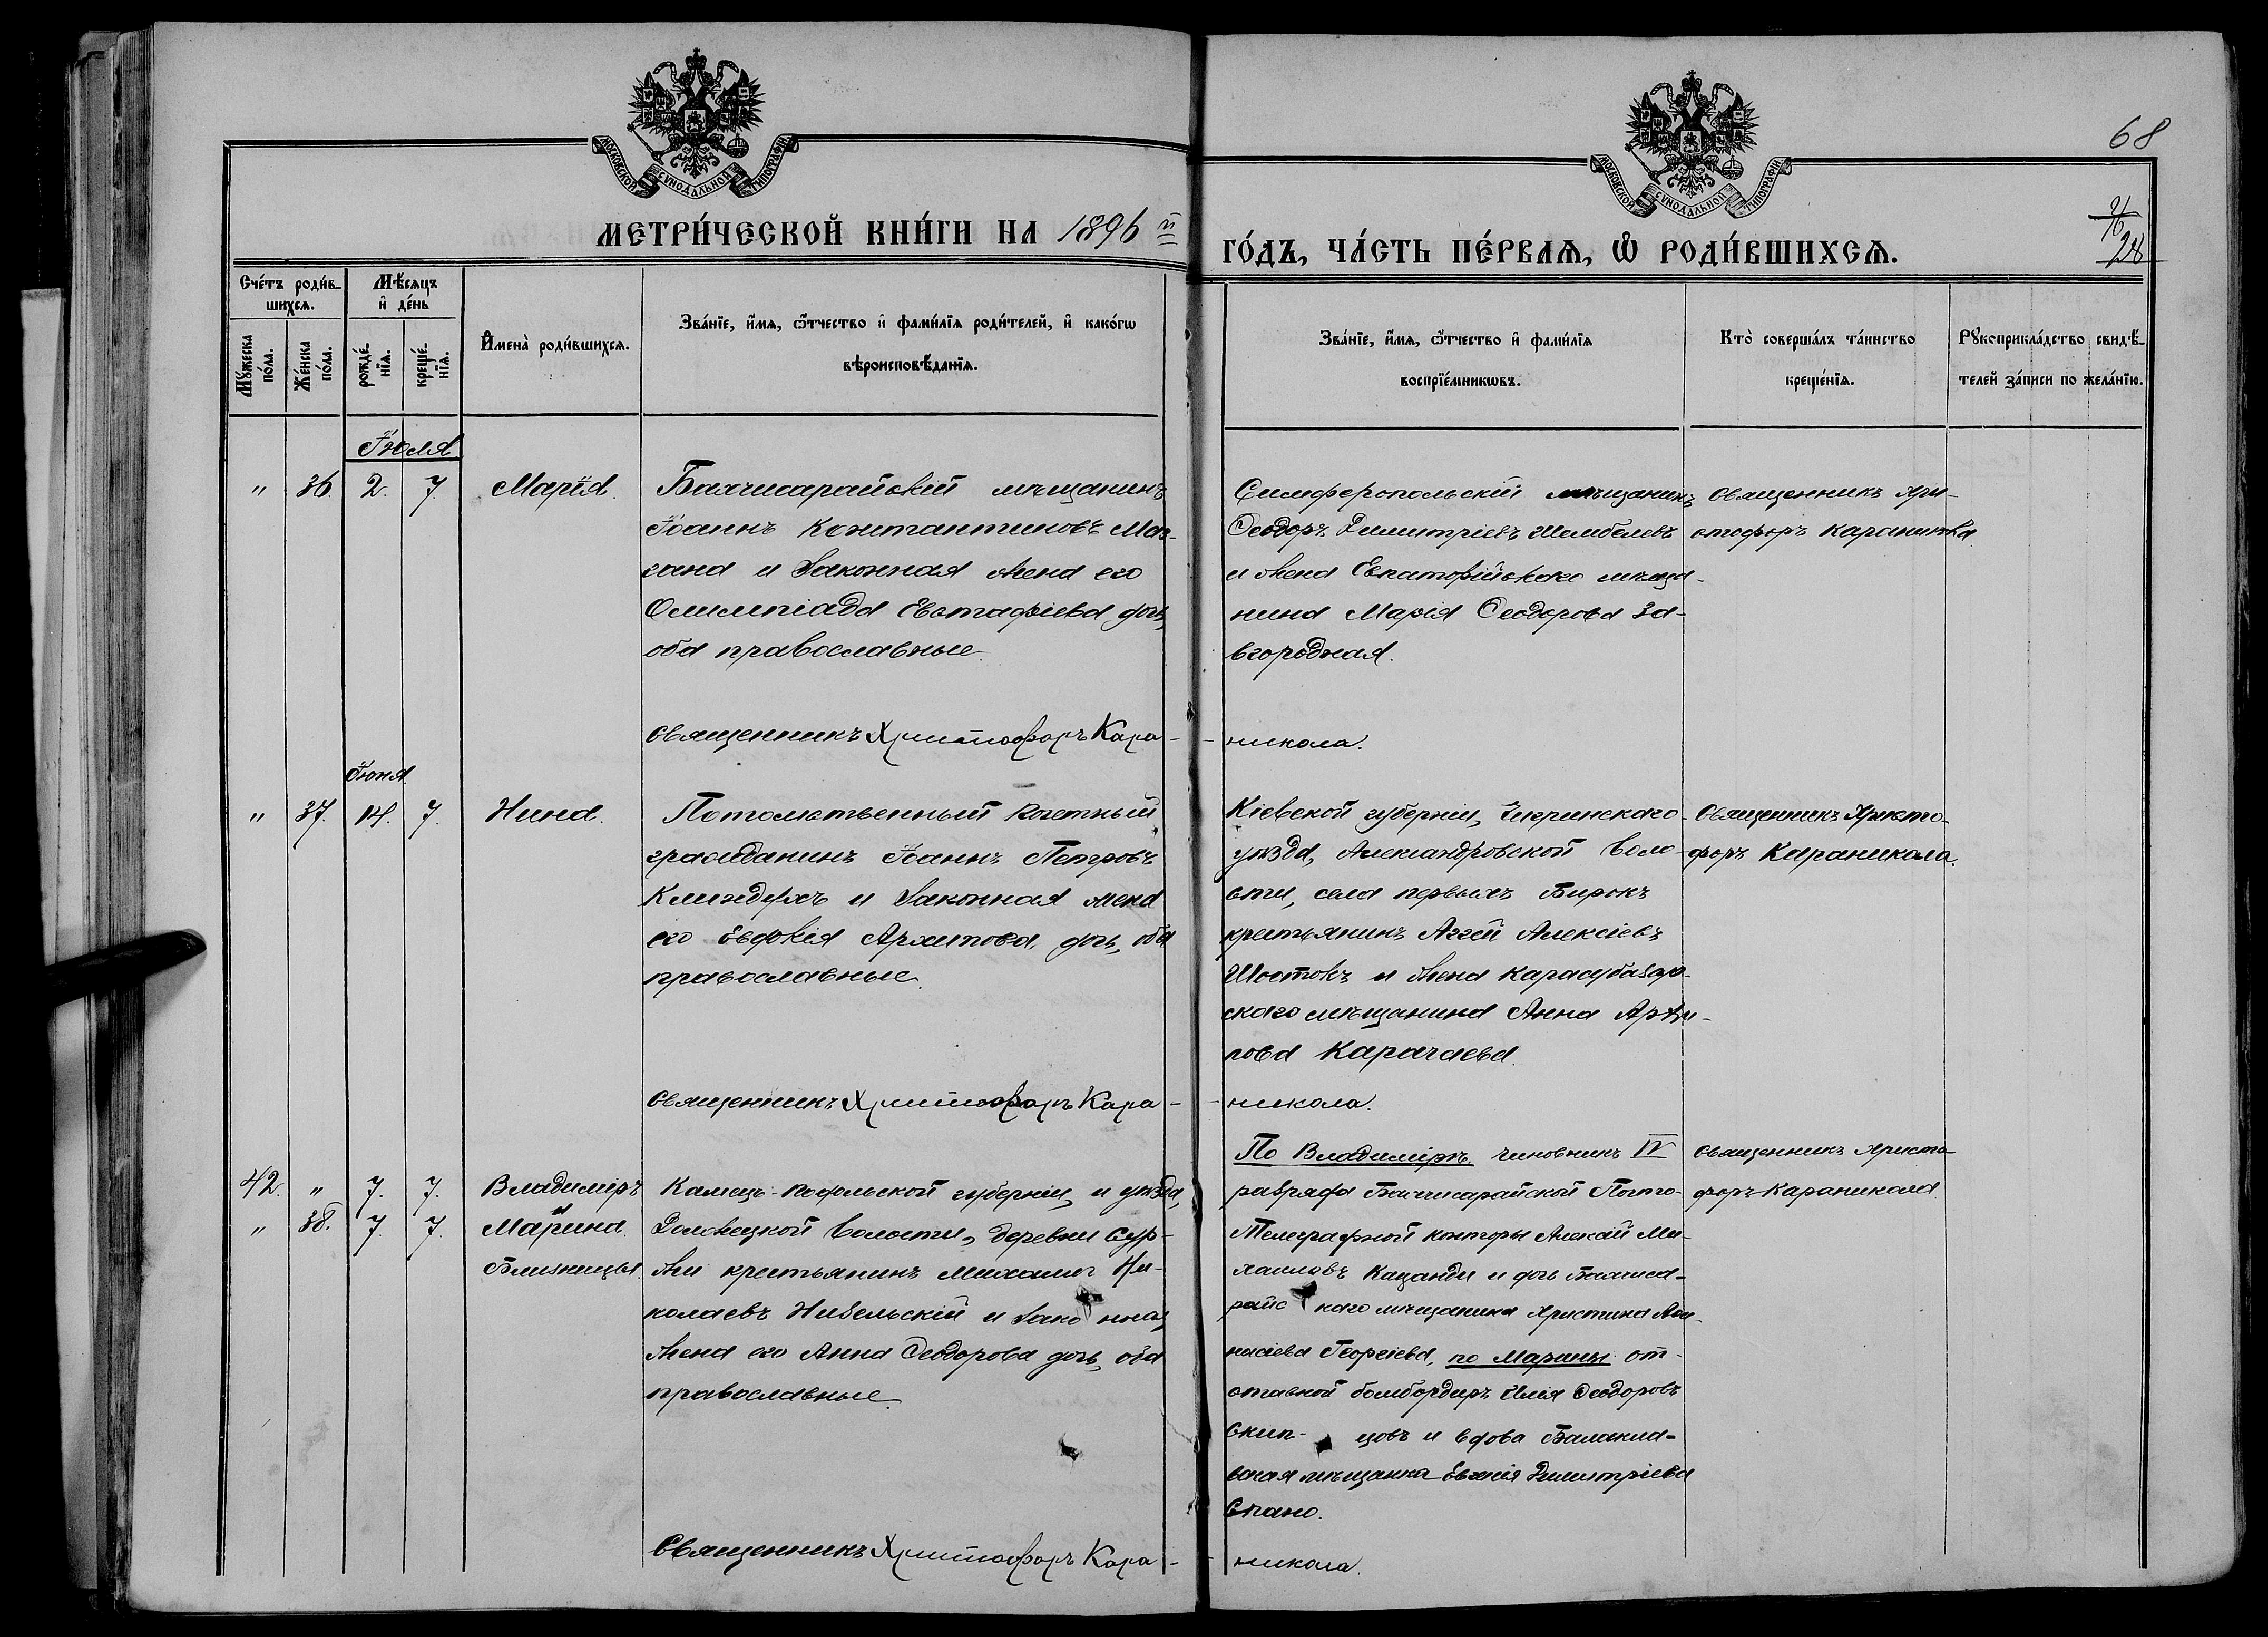 МОСКОВСКОЙ СѴНОДАЛЬНОЙ ТИПОГРАФІИ
МОСКОВСКОЙ СѴНОДАЛЬНОЙ ТИПОГРАФІИ
68
МЕТРИ́ЧЕСКОЙ КНИ́ГИ НА 1896 й
ГО́ДЪ, ЧА́СТЬ ПЕ́РВАЯ, Ѡ РОДИ́ВШИХСЯ.
28
Сче́тъ роди́в-
шихся.
Мѣ́сяцъ
и҆ де́нь
Мꙋ́жеска по́ла.
Же́нска по́ла.
рожде́нїя.
креще́нїя.
И҆мена̀ роди́вшихся.
Зва́нїе, и҆́мя, ѻ҆́тчество и҆ фами́лїя роди́телей, и҆ како́гѡ
вѣроисповѣ́данїя.
Зва́нїе, и҆́мя, ѻ҆́тчество и҆ фами́лїя
воспрїе́мникѡвъ.
Кто̀ соверша́лъ та́инство
креще́нїя.
Рꙋкоприкла́дство свидѣ́-
телей за́писи по жела́нїю.
Іюля
" 36. 2. 7. Марія.
Бахчисарайскій мѣщанинъ
Іоаннъ Константиновъ Маз-
гана и законная жена его
Олимпіада Евстафіева дочь,
оба православные.
Симферопольскій мѣщанинъ
Ѳеодоръ Димитріевъ Шембелевъ
и жена Евпаторійскаго мѣща-
нина Марія Ѳеодорова За-
вгородная.
Священникъ Хри-
стофоръ Караникола
Священникъ Христофоръ Кара-
-никола.
Іюня
" 37. 14. 7. Нина.
Потомственный почетный
гражданинъ Іоаннъ Петровъ
Клиндухъ и законная жена
его Евдокія Архипова дочь, оба
православные.
Кіевской губерніи, Чигринскаго
уѣзда, Александровской воло-
сти, села первыхъ Бирокъ
крестьянинъ Аггей Алексіевъ
Шостокъ и жена Карасубазар-
скаго мѣщанина Анна Архи-
пова Карачаева.
Священникъ Христо-
форъ Караникола.
Священникъ Христофоръ Кара-
-никола.
42. " 7. 7. Владиміръ
и
" 38. 7. 7. Марина.
Близнецы.
Камецъ-Подольской губерніи и уѣзда,
волости, деревни Сур-
жи крестьянинъ Михаилъ Ни-
колаевъ Нивельскій и законная
жена его Анна Ѳеодорова дочь, оба
православные.
По Владиміръ чиновникъ IV
разряда Бахчисарайской Почто-
Телеграфной конторы Алексій Ми-
хаиловъ Кацанди и дочь Бахчиса-
райскаго мѣщанина Христина Аѳа-
насіева Георгіева, по Марины от-
ставной бомбордиръ Илія Ѳеодоровъ
Скип- цовъ и вдова Балакла-
вская мѣщанка Евгенія Димитріева
Спано.
Священникъ Христо-
форъ Караникола.
Священникъ Христофоръ Кара-
-никола.